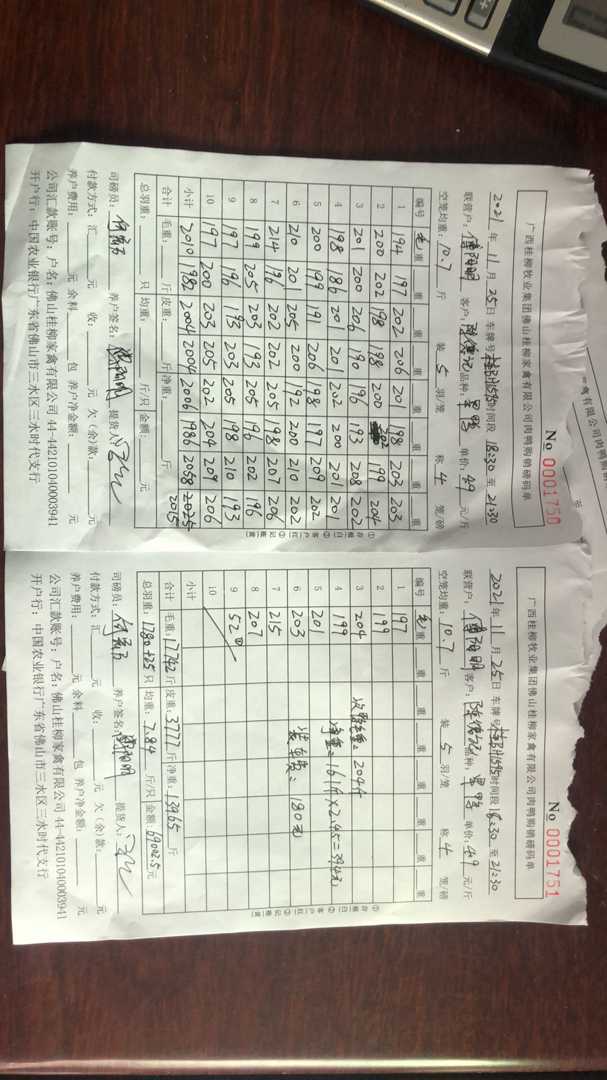 广西桂柳牧业集团佛山桂柳家禽有限公司肉鸭购销磅码单
No 0001750
2021年 11月 25日 车牌号 时间段 18:30 至 21:30
联营户: 客户: 品种: 单价: 4.9 元/斤
空笼均重: 10.7 斤 装 5 羽/笼 称 4 笼/磅
编号 毛重 重 重 重 重 重 重 重
1 194 197 202 206 201 198 203 203
2 200 202 198 198 200 202 199 204
3 201 200 206 190 196 193 208 202
4 198 186 201 201 202 200 201 201
5 200 199 191 206 198 197 209 202
6 210 201 205 200 192 200 210 202
7 214 196 202 202 205 198 207 206
8 199 205 203 193 205 196 202 196
9 197 196 193 203 205 198 210 193
10 197 200 203 205 202 204 209 206
小计 2010 1982 2004 2004 2006 1986 2058 2025 2015
合计 毛重: 斤 皮重: 斤 净重: 斤
总羽重: 只 均重: 斤/只 金额: 元
司磅员: 养户签名: 提货人:
付款方式: 汇 元 收: 元 欠(余)款: 元
养户费用: 元 余料 包 养户净金额: 元
公司汇款账号: 户名: 佛山桂柳家禽有限公司 44-442101040003941
开户行: 中国农业银行广东省佛山市三水区三水时代支行
①存根(白) ②客户(红) ③记账(黄)
广西桂柳牧业集团佛山桂柳家禽有限公司肉鸭购销磅码单
No 0001751
2021年 11月 25日 车牌号 时间段 18:30 至 21:30
联营户: 客户: 品种: 单价: 4.9 元/斤
空笼均重: 10.7 斤 装 5 羽/笼 称 4 笼/磅
编号 毛重 重 重 重 重 重 重 重
1 197
2 199
3 204
4 199
5 201
6 203
7 215
8 207
9 52①
10
净重=1619×2.45=3943元
装车费=180元
合计 毛重: 17742 斤 皮重: 3777 斤 净重: 13965 斤
总羽重: 1780+25 只 均重: 7.84 斤/只 金额: 69002.5 元
司磅员: 养户签名: 提货人:
付款方式: 汇 元 收: 元 欠(余)款: 元
养户费用: 元 余料 包 养户净金额: 元
公司汇款账号: 户名: 佛山桂柳家禽有限公司 44-442101040003941
开户行: 中国农业银行广东省佛山市三水区三水时代支行
①存根(白) ②客户(红) ③记账(黄)